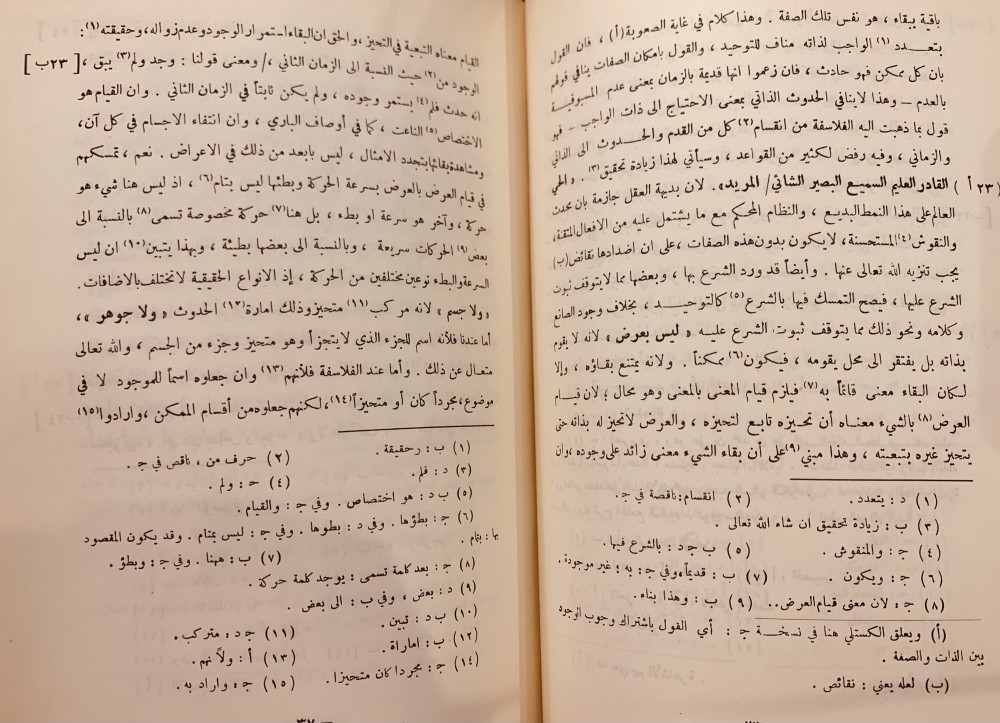 باقية ببقاء ، هو نفس تلك الصفة . وهذا كلام في غاية الصعوبة (أ) ، فان القول
بتعـدد (١) الواجب لذاته مناف للتوحيد ، والقول بامكان الصفات ينافي قولهم
بان كل ممكن فهو حادث ، فان زعموا انها قديمة بالزمان بمعنى عدم المسبوقيـة
بالعدم – وهذا لاينافي الحدوث الذاتي بمعنى الاحتياج الى ذات الواجب – فهو
قول بما ذهبت اليه الفلاسفة من انقسام (٢) كل من القدم والحـدوث الى الذاتي
والزماني ، وفيه رفض لكثير من القواعد ، وسيأتي لهذا زيادة تحقيق (٣) . « الحي
٢٣ أ ) القادر العليم السميع البصير الشائي / المريد» . لان بديهة العقل جازمة بان محدث
العالم على هذا النمط البديع ، والنظام المحكم مع ما يشتمل عليه من الافعال المتقنة،
والنقوش (٤) المستحسنة، لايكون بدون هذه الصفات ، على ان اضدادها نقائص (ب)
يجب تنزيه الله تعالى عنها . وأيضاً قد ورد الشرع بها ، وبعضها مما لايتوقف ثبوت
الشرع عليها ، فيصح التمسك فيها بالشرع (٥) كالتوحيـد ، بخلاف وجود الصانع
وكلامه ونحو ذلك مما يتوقف ثبوت الشرع عليـه « ليس بعرض » لانه لا يقوم
بذاته بل يفتقر الى محل يقومه ، فيكون (٦) ممكناً . ولانه يمتنع بقاؤه ، وإلا
لـكان البقاء معنى قائماً به (٧) فيلزم قيام المعنى بالمعنى وهو محال ؛ لأن قيـام
العرض (٨) بالشيء معنـاه أن تحـيزه تابع لتحيزه ، والعرض لاتحيز له بذاته حتى
يتحيز غيره بتبعيته ، وهذا مبني (٩) على أن بقاء الشيء معنى زائد على وجوده، وان
(١) د : بتعدد . (٢) انقسام: ناقصة في ج .
(٣) ب : زيادة تحقيق ان شاء الله تعالى .
(٤) ج : والمنقوش . (٥) ب ج د : بالشرع فيها .
(٦) ج : ويكون . (٧) ب : قديماً، وفي ج : به ؛ غير موجودة .
(٨) ج : لان معنى قيام العرض . . (٩) ب : وهذا بناء .
(أ) ويعلق الكستلي هنا في نسخـة ج : أي القول باشتراك وجوب الوجود
بين الذات والصفة .
(ب) لعله يعني : نقائص .
القيام معناه التبعية في التحيز ، والحق ان البقاء استمرار الوجود وعدم زواله، وحقيقته (١) :
الوجود من (٢) حيث النسبة الى الزمان الثاني ، / ومعنى قولنا : وجد ولم (٣) يبق ، [ ٢٣ ب ]
انه حدث فلم (٤) يستمر وجوده ، ولم يكن ثابتاً في الزمان الثاني . وان القيام هو
الاختصاص (٥) الناعت ، كما في أوصاف الباري ، وان انتفاء الاجسام في كل آن،
ومشاهدة بقائها بتجدد الامثال ، ليس بابعد من ذلك في الاعراض . نعم ، تمسكهم
في قيام العرض بالعرض بسرعة الحركة وبطئها ليس بتام (٦) ، اذ ليس هنا شيء هو
حركة ، وآخر هو سرعة او بطء ، بل هنا (٧) حركة مخصوصة تسمى (٨) بالنسبة الى
بعض (٩) الحركات سريعة ، وبالنسبة الى بعضها بطيئة ، وبهذا يتبين (١٠) ان ليس
السرعة والبطء نوعين مختلفين من الحركة ، إذ الانواع الحقيقية لا تختلف بالاضافات .
« ولا جسم » لانه مركب (١١) متحيز وذلك امارة (١٢) الحدوث « ولا جوهر » ،
أما عندنا فلأنه اسم للجزء الذي لايتجزأ وهو متحيز وجزء من الجسم ، والله تعالى
متعـال عن ذلك . وأما عند الفلاسفة فلأنهم (١٣) وان جعلوه اسماً للموجود لا في
موضوع، مجرداً كان أو متحيزاً (١٤) ، لكنهم جعلوه من أقسام الممكن ، وارادوا (١٥)
(١) ب : رحقيقة . (٢) حرف من ، ناقص في ج .
(٣) د : فلم . (٤) ح : ولم .
(٥) ب د : هو اختصاص . وفي ج : والقيام .
(٦) ج : بطؤها . وفي د : بطوها . وفي ج : ليس بتمام . وقد يكون المقصود
بها : بتام . (٧) ب : ههنا . وفي ج : وبطؤ .
(٨) ج : بعد كلمة تسمى : يوجد كلمة حركة .
(٩) د : بعض ، وفي ب : الى بعض .
(١٠) ب د : تبين . (١١) ج د : متركب .
(١٢) ب : اماراة . (١٣) أ : ولأنهم .
(١٤) ج : مجردا كان متحيزا . (١٥) ج : واراد به .
— ٣٧